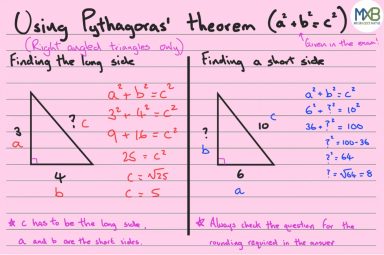 Using Pythagoras' theorem (a² + b² = c²)
MXB
(Right angled triangles only)
Given in the exam
Finding the long side
Finding a short side
a² + b² = c²
3² + 4² = c²
9 + 16 = c²
25 = c²
c = √25
c = 5
3
a
?
c
4
b
a² + b² = c²
6² + ?² = 10²
36 + ?² = 100
?² = 100 - 36
?² = 64
? = √64 = 8
?
b
10
c
6
a
* c has to be the long side,
a and b are the short sides.
* Always check the question for the
rounding required in the answer